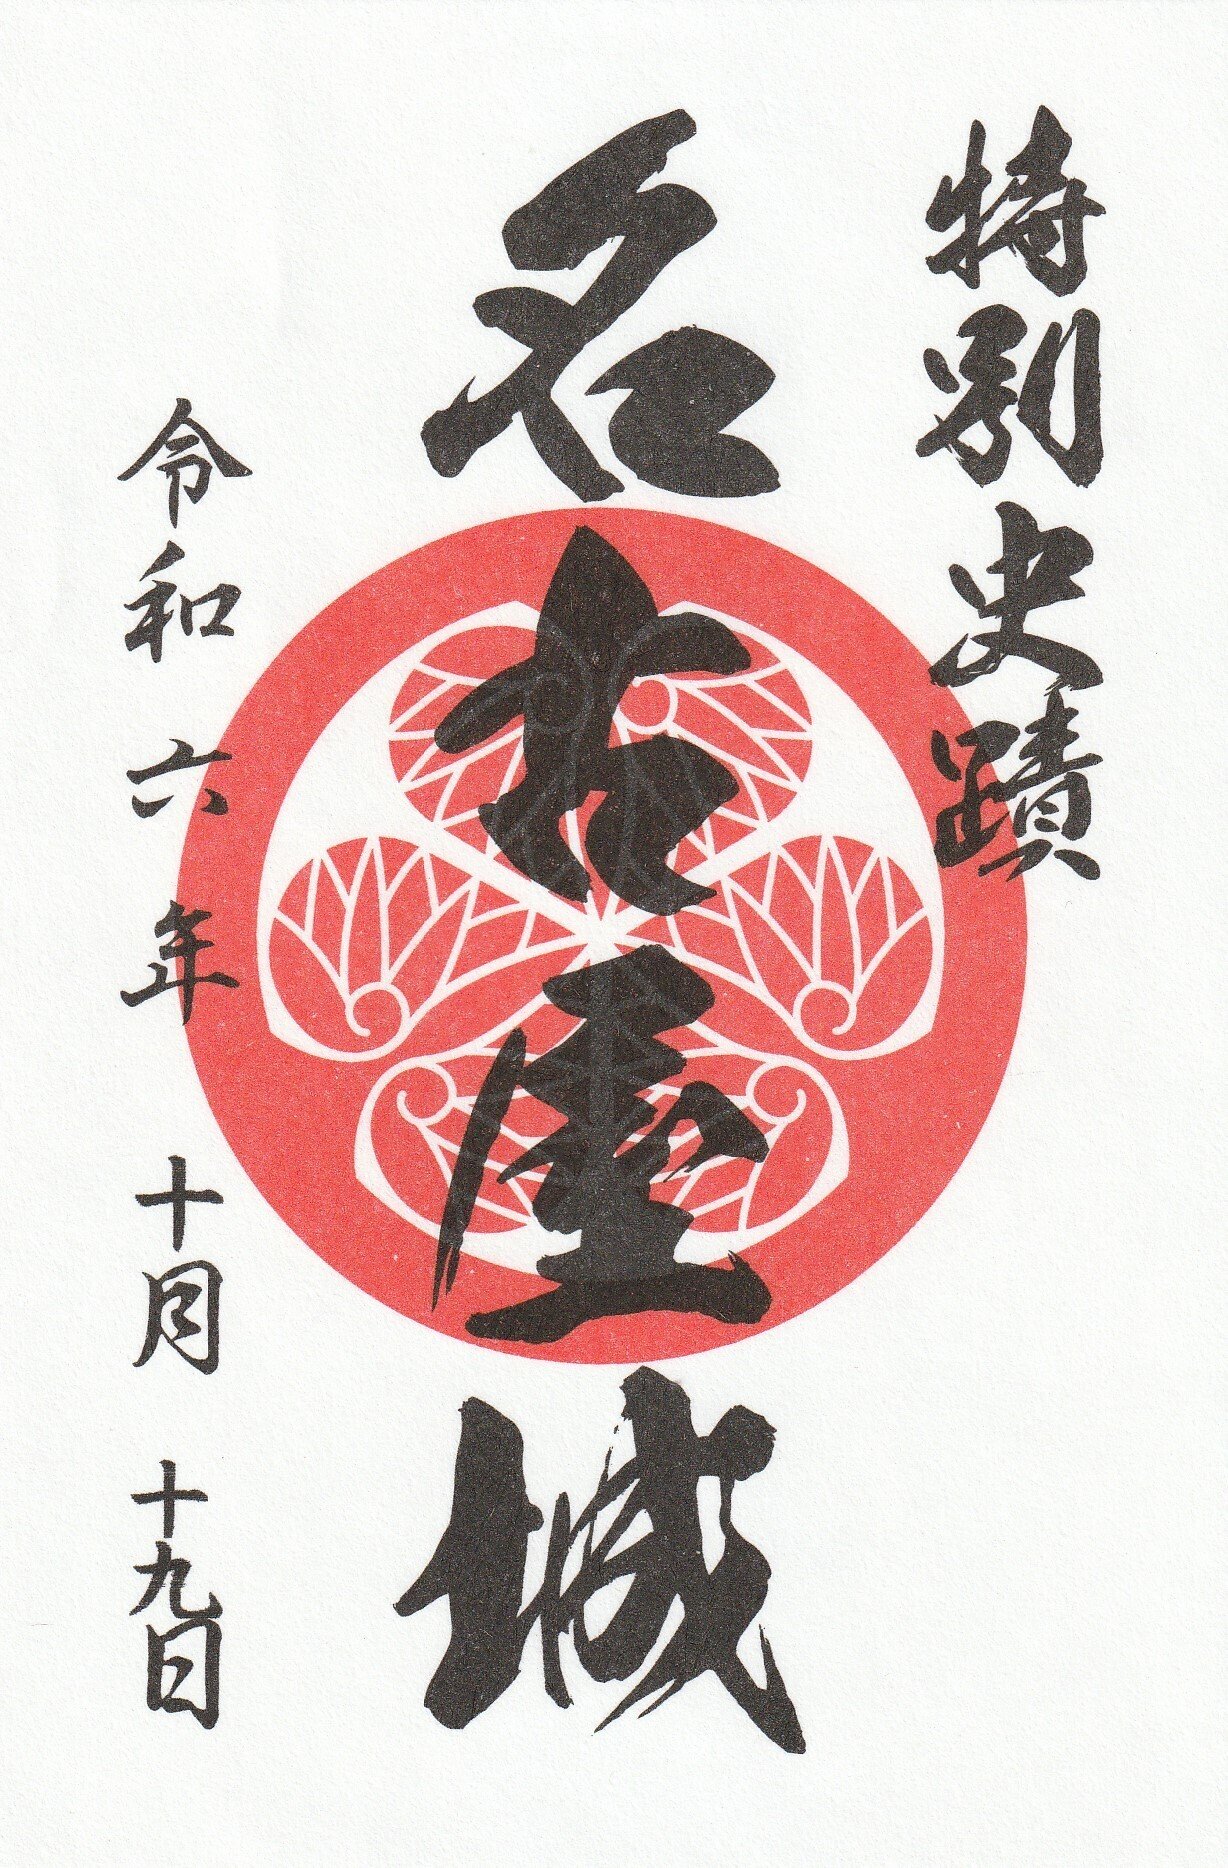 特別史蹟
名古屋城
令和六年十月十九日